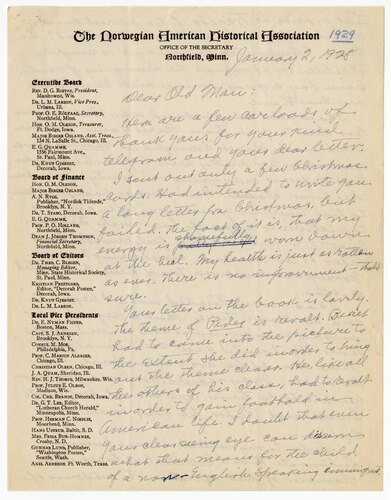 The Norwegian American Historical Association
1929
OFFICE OF THE SECRETARY
Northfield, Minn.
January 2, 1928
Executive Board
REV. D. G. RISTAD, President,
Manitowoc, Wis.
DR. L. M. LARSON, Vice Pres.,
Urbana, Ill.
PROF. O. E. ROLVAAG, Secretary,
Northfield, Minn.
HON. O. M. OLESON, Treasurer,
Ft. Dodge, Iowa.
MAJOR BIRGER OSLAND, Asst. Treas.
134 N. LaSalle St., Chicago, Ill.
E. G. QUAMME,
1356 Fairmount Ave.,
St. Paul, Minn.
DR. KNUT GJERSET,
Decorah, Iowa.
Board of Finance
HON. O. M. OLESON,
MAJOR BIRGER OSLAND,
A. N. RYGG,
Publisher, "Nordisk Tidende,"
Brooklyn, N. Y.
DR. T. STABO, Decorah, Iowa.
E. G. QUAMME,
PROF. P. O. HOLLAND,
Northfield, Minn.
DEAN J. JÖRGEN THOMPSON,
Financial Secretary,
Northfield, Minn.
Board of Editors
DR. THEO. C. BLEGEN,
Managing Editor,
Minn. State Historical Society,
St. Paul, Minn.
KRISTIAN PRESTGARD,
Editor, "Decorah Posten,"
Decorah, Iowa.
DR. KNUT GJERSET,
DR. L. M. LARSON.
Local Vice Presidents
Boston, Mass.
CAPT. S. J. ARNESEN,
Brooklyn, N. Y.
CONSUL M. MOE,
Philadelphia, Pa.
Chicago, Ill.
CHRISTIAN OLSEN, Chicago, Ill.
J. A. QUAM, Sheridan, Ill.
REV. H. J. THORPE, Milwaukee, Wis.
PROF. JULIUS E. OLSON,
Madison, Wis.
COL. CHR. BRANDT, Decorah, Iowa.
DR. G. T. LEE, Editor,
"Lutheran Church Herald,"
Minneapolis, Minn.
Moorhead, Minn.
Baltic, S. D.
Crosby, N. D.
GUNNAR LUND, Publisher,
"Washington Posten,"
Seattle, Wash.
AXEL ARNESON, Ft. Worth, Texas.
Dear Old Man:
Here are a few carloads of
thank yous for your kind
telegram and your dear letter.
I sent out only a few Christmas
cards. Had intended to write you
a long letter for Christmas, but
failed. The fact of it is, that my
energy is shamefully worn down
at the heal. My health is just as rotten
as ever. There is no improvement - that's
sure.
Your letter on the book is lovely.
The theme of Peder is Revolt. Beret
had to come into the picture to
the extent she did in order to bring
out the theme clearer. He, like all
the others of his class, had to revolt
in order to gain foothold in
American life. I doubt that even
your clear seeing eye can discern
what that means for the child
of a non-English speaking